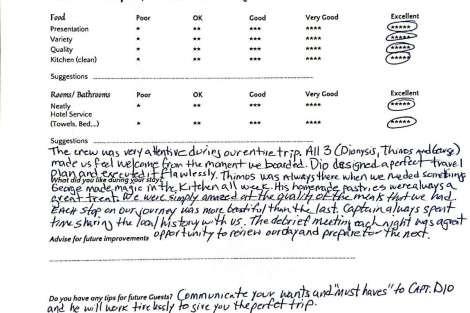 Food Poor OK Good Very Good Excellent
Presentation * ** *** **** *****
Variety * ** *** **** *****
Quality * ** *** **** *****
Kitchen (clean) * ** *** **** *****
Suggestions
Rooms/Bathrooms Poor OK Good Very Good Excellent
Neatly * ** *** **** *****
Hotel Service
(Towels, Bed...) * ** *** **** *****
Suggestions
The crew was very attentive during our entire trip. All 3 (Dionysis, Thimos and George)
made us feel welcome from the moment we boarded. Dio designed a perfect travel
plan and executed it flawlessly. Thimos was always there when we needed something
What did you like during your stay?
George made magic in the kitchen all week. His homemade pastries were always a
great treat. We were simply amazed at the quality of the meals that we had
Each stop on our journey was more beautiful than the last. Captain always spent
time sharing the local history with us. The debrief meeting each night was a great
Advise for future improvements opportunity to review our day and prepare for the next.
Do you have any tips for future Guests? Communicate your wants and "must haves" to CAPT. DIO
and he will work tirelessly to give you the perfect trip.